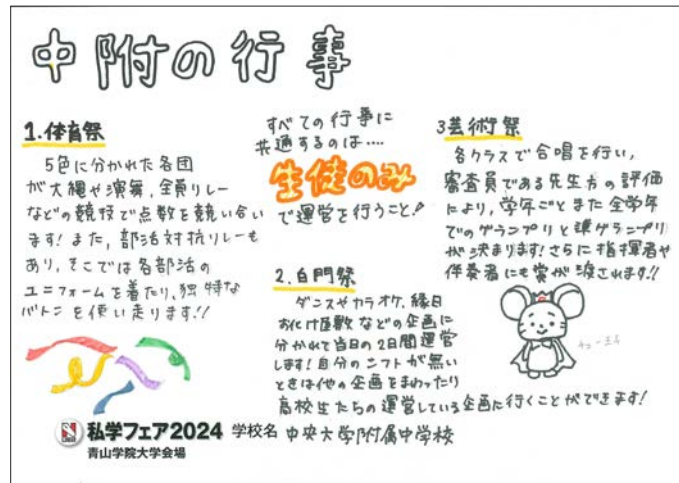 中附の行事
1.体育祭
5色に分かれた各団
が大縄や演舞、全員リレー
などの競技で点数を競い合い
ます！また、部活対抗リレーも
あり、そこでは各部活の
ユニフォームを着たり、独特な
バトンを使い走ります！！
すべての行事に
共通するのは....
生徒のみ
で運営を行うこと！
2.白門祭
ダンスやカラオケ、縁日
お化け屋敷などの企画に
分かれて当日の2日間運営
します！自分のシフトが無い
ときは他の企画をまわったり
高校生たちの運営している企画に行くことができます！
3芸術祭
各クラスで合唱を行い、
審査員である先生方の評価
により、学年ごとまた全学年
でのグランプリと準グランプリ
が決まります！さらに指揮者や
伴奏者にも賞が渡されます！！
チュー王子
私学フェア2024 学校名 中央大学附属中学校
青山学院大学会場